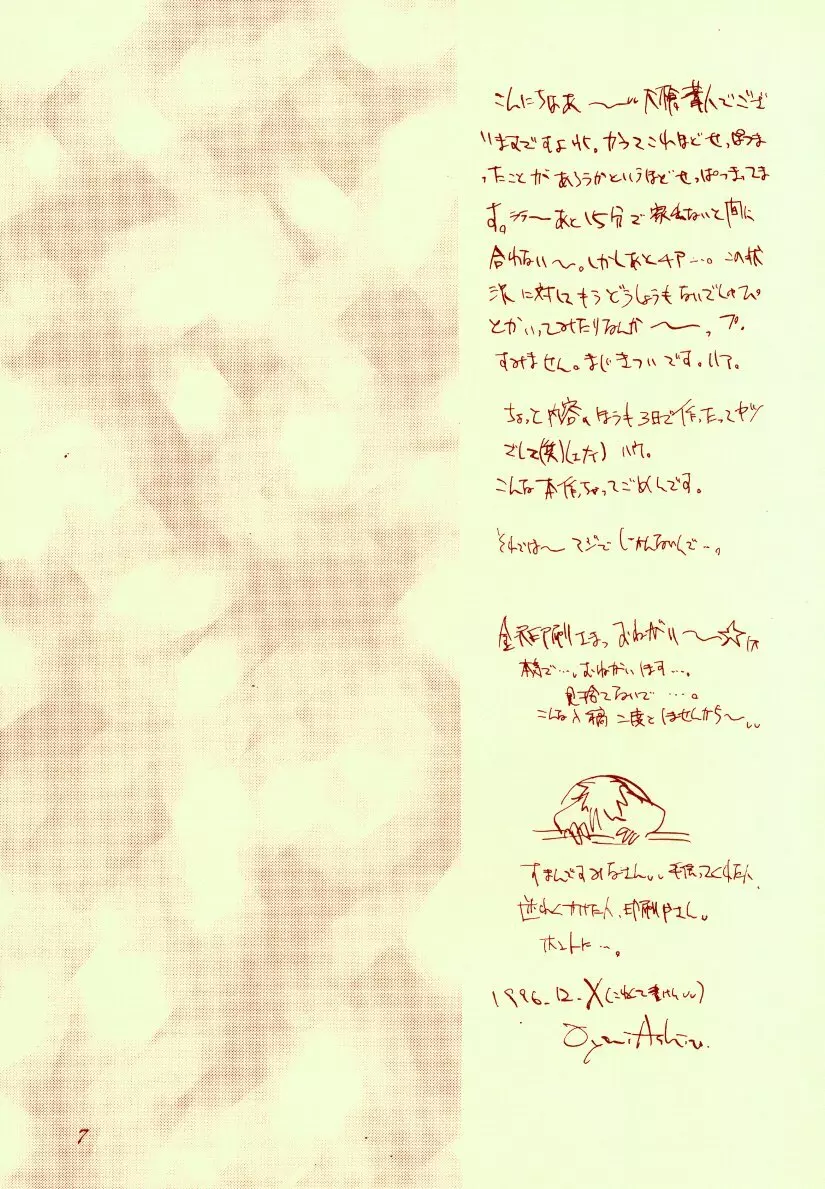 こんにちなあ〜 大槍葦人でござ
いますですよハイ。かつてこれほどせっぱつま
ったことがあろうかというほどせっぱつまってま
す。あと15分で家出ないと間に
合わない〜。しかしあと4P…。この状
況に対してもうどうしようもないでしゅぴ
とかいってみたりなんか〜、プ。
すみません。まじきついです。ハア。
ちょっと内容のほうも3日で作ったってヤツ
でして(笑) ハウ。
こんな本作っちゃってごめんです。
それでは〜マジでしゃれんないんで…。
金沢印刷さまっおねがい〜☆
本様で…。おねがいします…。
見捨てないで…。
こんな入稿二度としませんから〜
すまんですみなさん。手伝ってくれた人、
迷わくかけた人、印刷やさん。
ホントに…。
1996.12.X(こわくて書けん)
Oyari Ashito.
7